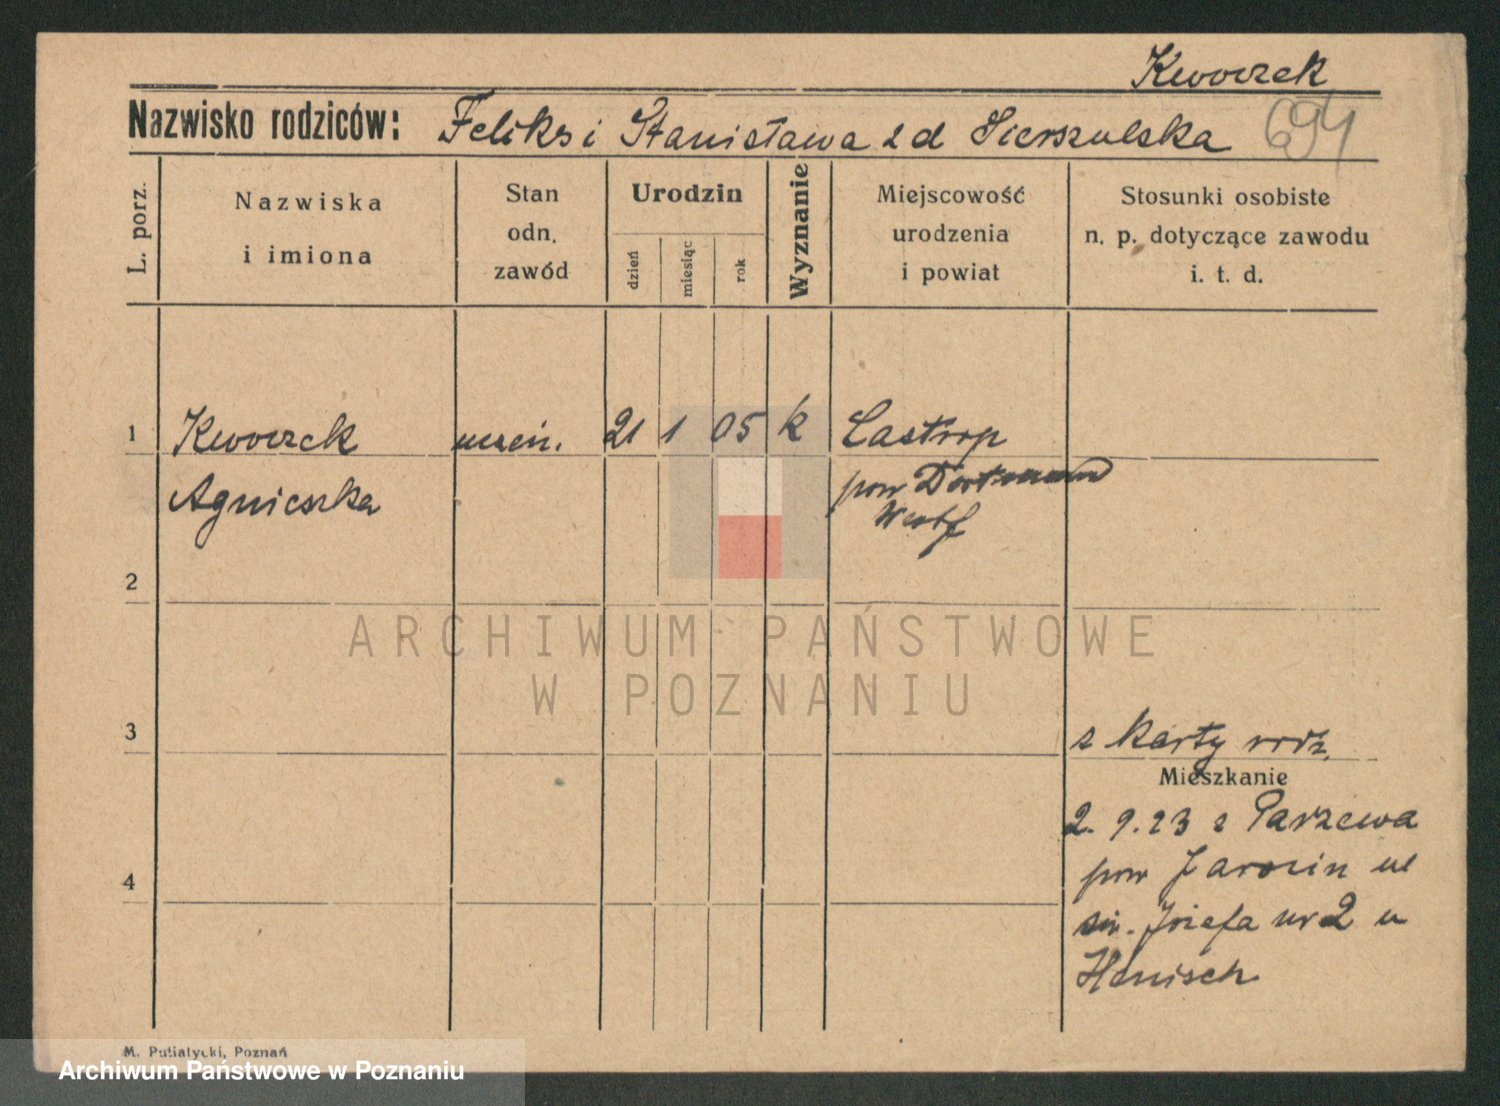 Kworzek
694
Nazwisko rodziców: Feliks i Stanisława z d Sierszulska
L. porz.
Nazwiska
i imiona
Stan
odn.
zawód
Urodzin
dzień
miesiąc
rok
Wyznanie
Miejscowość
urodzenia
i powiat
Stosunki osobiste
n. p. dotyczące zawodu
i. t. d.
1 Kworzek uczeń. 21 1 05 k Castrop
Agnieszka pow Dortmund
Westf
2
3
z karty rodz.
Mieszkanie
2. 9. 23 z Parzewa
4
pow Jarocin ul
św. Józefa nr 2 u
Henisch
ARCHIWUM PAŃSTWOWE
W POZNANIU
M. Putiatycki, Poznań
Archiwum Państwowe w Poznaniu